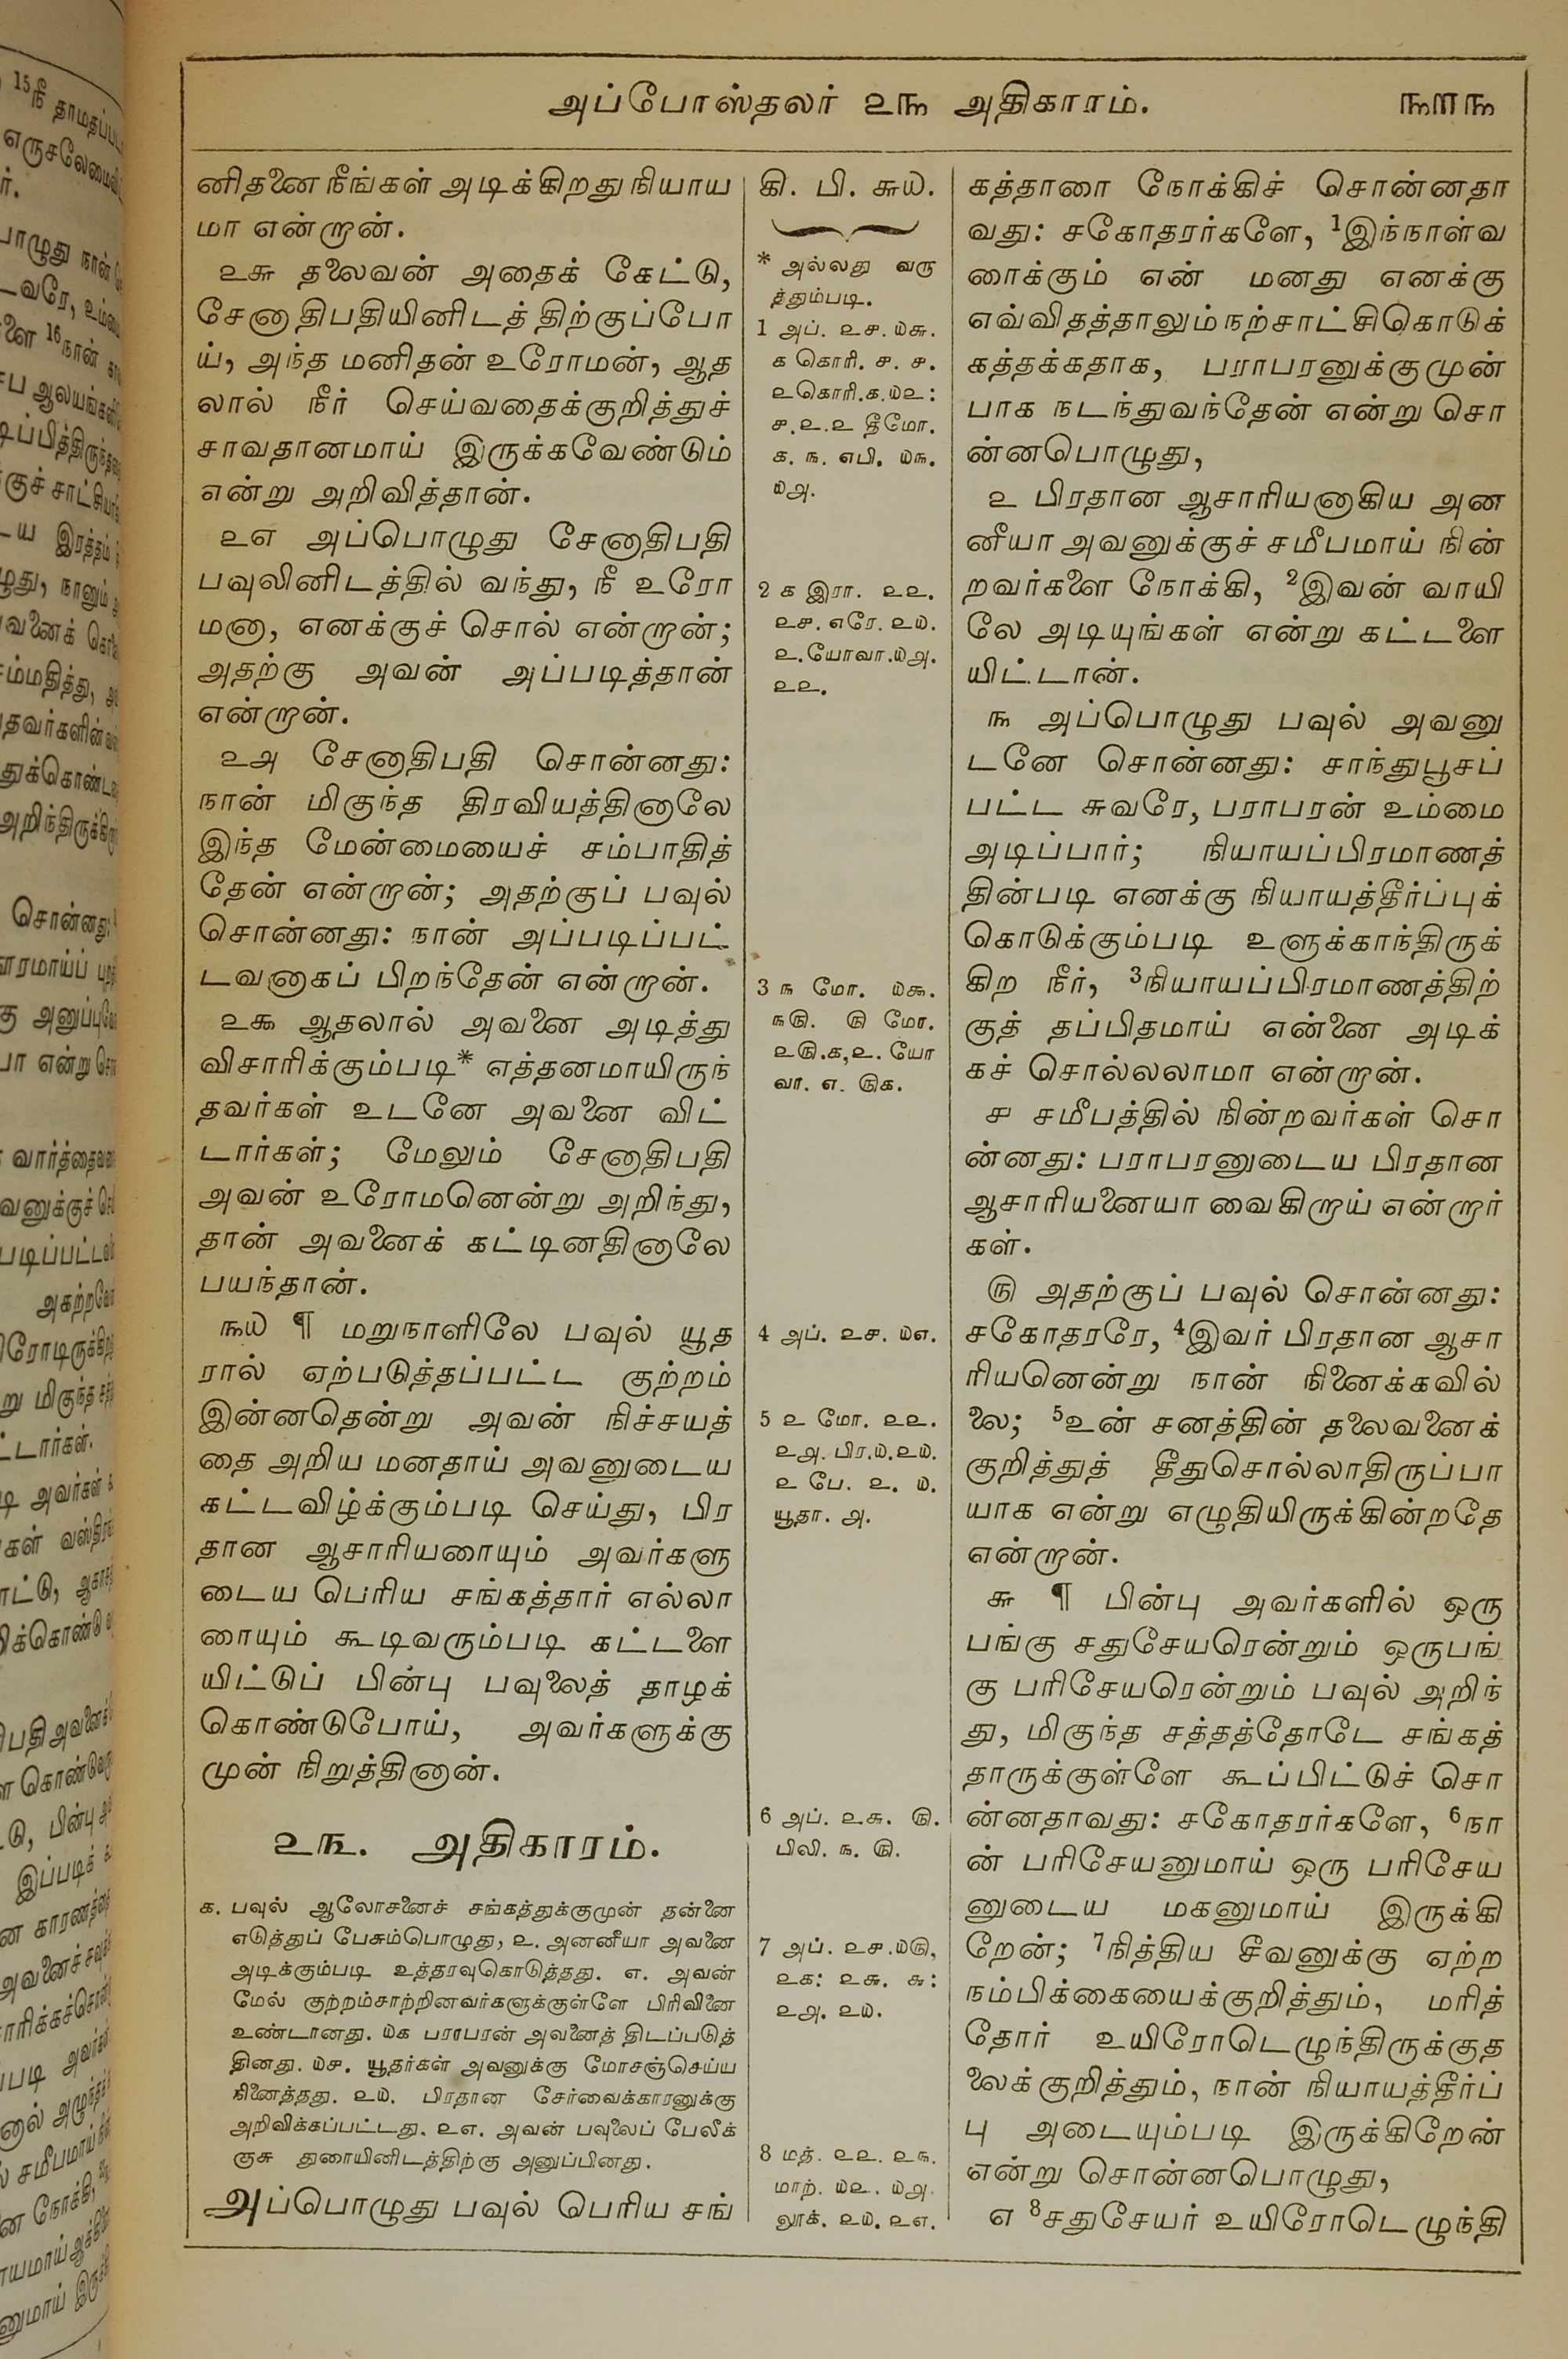 அப்போஸ்தலர் ௨௩ அதிகாரம். ௩௱௩
னிதனை நீங்கள் அடிக்கிறது நியாய
மா என்றான்.
௨௬ தலைவன் அதைக் கேட்டு,
சேனாதிபதியினிடத்திற்குப்போ
ய், அந்த மனிதன் உரோமன், ஆத
லால் நீர் செய்வதைக்குறித்துச்
சாவதானமாய் இருக்கவேண்டும்
என்று அறிவித்தான்.
௨௭ அப்பொழுது சேனாதிபதி
பவுலினிடத்தில் வந்து, நீ உரோ
மனா, எனக்குச் சொல் என்றான்;
அதற்கு அவன் அப்படித்தான்
என்றான்.
௨௮ சேனாதிபதி சொன்னது:
நான் மிகுந்த திரவியத்தினாலே
இந்த மேன்மையைச் சம்பாதித்
தேன் என்றான்; அதற்குப் பவுல்
சொன்னது: நான் அப்படிப்பட்
டவனாகப் பிறந்தேன் என்றான்.
௨௯ ஆதலால் அவனை அடித்து
விசாரிக்கும்படி* எத்தனமாயிருந்
தவர்கள் உடனே அவனை விட்
டார்கள்; மேலும் சேனாதிபதி
அவன் உரோமனென்று அறிந்து,
தான் அவனைக் கட்டினதினாலே
பயந்தான்.
௩௰ ¶ மறுநாளிலே பவுல் யூத
ரால் ஏற்படுத்தப்பட்ட குற்றம்
இன்னதென்று அவன் நிச்சயத்
தை அறிய மனதாய் அவனுடைய
கட்டவிழ்க்கும்படி செய்து, பிர
தான ஆசாரியரையும் அவர்களு
டைய பெரிய சங்கத்தார் எல்லா
ரையும் கூடிவரும்படி கட்டளை
யிட்டுப் பின்பு பவுலைத் தாழக்
கொண்டுபோய், அவர்களுக்கு
முன் நிறுத்தினான்.
௨௩. அதிகாரம்.
௧. பவுல் ஆலோசனைச் சங்கத்துக்குமுன் தன்னை
எடுத்துப் பேசும்பொழுது, ௨. அனனீயா அவனை
அடிக்கும்படி உத்தரவுகொடுத்தது. ௭. அவன்
மேல் குற்றம்சாற்றினவர்களுக்குள்ளே பிரிவினை
உண்டானது. ௰௧ பராபரன் அவனைத் திடப்படுத்
தினது. ௰௪. யூதர்கள் அவனுக்கு மோசஞ்செய்ய
நினைத்தது. ௨௰. பிரதான சேர்வைக்காரனுக்கு
அறிவிக்கப்பட்டது. ௨௭. அவன் பவுலைப் பேலீக்
குசு துரையினிடத்திற்கு அனுப்பினது.
அப்பொழுது பவுல் பெரிய சங்
கி. பி. ௬௰.
* அல்லது வரு
த்தும்படி.
1 அப். ௨௪. ௰௬.
௧ கொரி. ௪. ௪.
௨கொரி.௧.௰௨:
௪.௨.௨ தீமோ.
௧. ௩. எபி. ௰௩.
௰௮.
2 ௧ இரா. ௨௨.
௨௪. எரே. ௨௰.
௨.யோவா.௰௮.
௨௨.
3 ௩ மோ. ௰௯.
௩௫. ௫ மோ.
௨௫.௧,௨. யோ
வா. ௭. ௫௧.
4 அப். ௨௪. ௰௭.
5 ௨ மோ. ௨௨.
௨௮. பிர.௰.௨௰.
௨ பே. ௨. ௰.
யூதா. ௮.
6 அப். ௨௬. ௫.
பிலி. ௩. ௫.
7 அப். ௨௪.௰௫,
௨௧: ௨௬. ௬:
௨௮. ௨௰.
8 மத். ௨௨. ௨௩.
மாற். ௰௨. ௰௮.
லூக். ௨௰. ௨௭.
கத்தாரை நோக்கிச் சொன்னதா
வது: சகோதரர்களே, 1இந்நாள்வ
ரைக்கும் என் மனது எனக்கு
எவ்விதத்தாலும் நற்சாட்சிகொடுக்
கத்தக்கதாக, பராபரனுக்குமுன்
பாக நடந்துவந்தேன் என்று சொ
ன்னபொழுது,
௨ பிரதான ஆசாரியனாகிய அன
னீயா அவனுக்குச் சமீபமாய் நின்
றவர்களை நோக்கி, 2இவன் வாயி
லே அடியுங்கள் என்று கட்டளை
யிட்டான்.
௩ அப்பொழுது பவுல் அவனு
டனே சொன்னது: சாந்துபூசப்
பட்ட சுவரே, பராபரன் உம்மை
அடிப்பார்; நியாயப்பிரமாணத்
தின்படி எனக்கு நியாயத்தீர்ப்புக்
கொடுக்கும்படி உளுக்காந்திருக்
கிற நீர், 3நியாயப்பிரமாணத்திற்
குத் தப்பிதமாய் என்னை அடிக்
கச் சொல்லலாமா என்றான்.
௪ சமீபத்தில் நின்றவர்கள் சொ
ன்னது: பராபரனுடைய பிரதான
ஆசாரியனையா வைகிறாய் என்றார்
கள்.
௫ அதற்குப் பவுல் சொன்னது:
சகோதரரே, 4இவர் பிரதான ஆசா
ரியனென்று நான் நினைக்கவில்
லை; 5உன் சனத்தின் தலைவனைக்
குறித்துத் தீதுசொல்லாதிருப்பா
யாக என்று எழுதியிருக்கின்றதே
என்றான்.
௬ ¶ பின்பு அவர்களில் ஒரு
பங்கு சதுசேயரென்றும் ஒருபங்
கு பரிசேயரென்றும் பவுல் அறிந்
து, மிகுந்த சத்தத்தோடே சங்கத்
தாருக்குள்ளே கூப்பிட்டுச் சொ
ன்னதாவது: சகோதரர்களே, 6நா
ன் பரிசேயனுமாய் ஒரு பரிசேய
னுடைய மகனுமாய் இருக்கி
றேன்; 7நித்திய சீவனுக்கு ஏற்ற
நம்பிக்கையைக்குறித்தும், மரித்
தோர் உயிரோடெழுந்திருக்குத
லைக்குறித்தும், நான் நியாயத்தீர்ப்
பு அடையும்படி இருக்கிறேன்
என்று சொன்னபொழுது,
௭ 8சதுசேயர் உயிரோடெழுந்தி